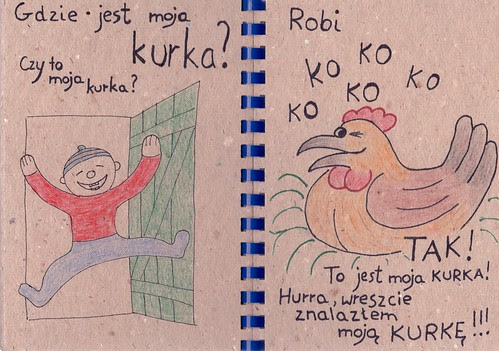 Gdzie jest moja
kurka?
Czy to
moja kurka?
Robi
KO KO KO
KO KO
TAK!
To jest moja KURKA!
Hurra, wreszcie
znalazłem
moją KURKĘ!!!